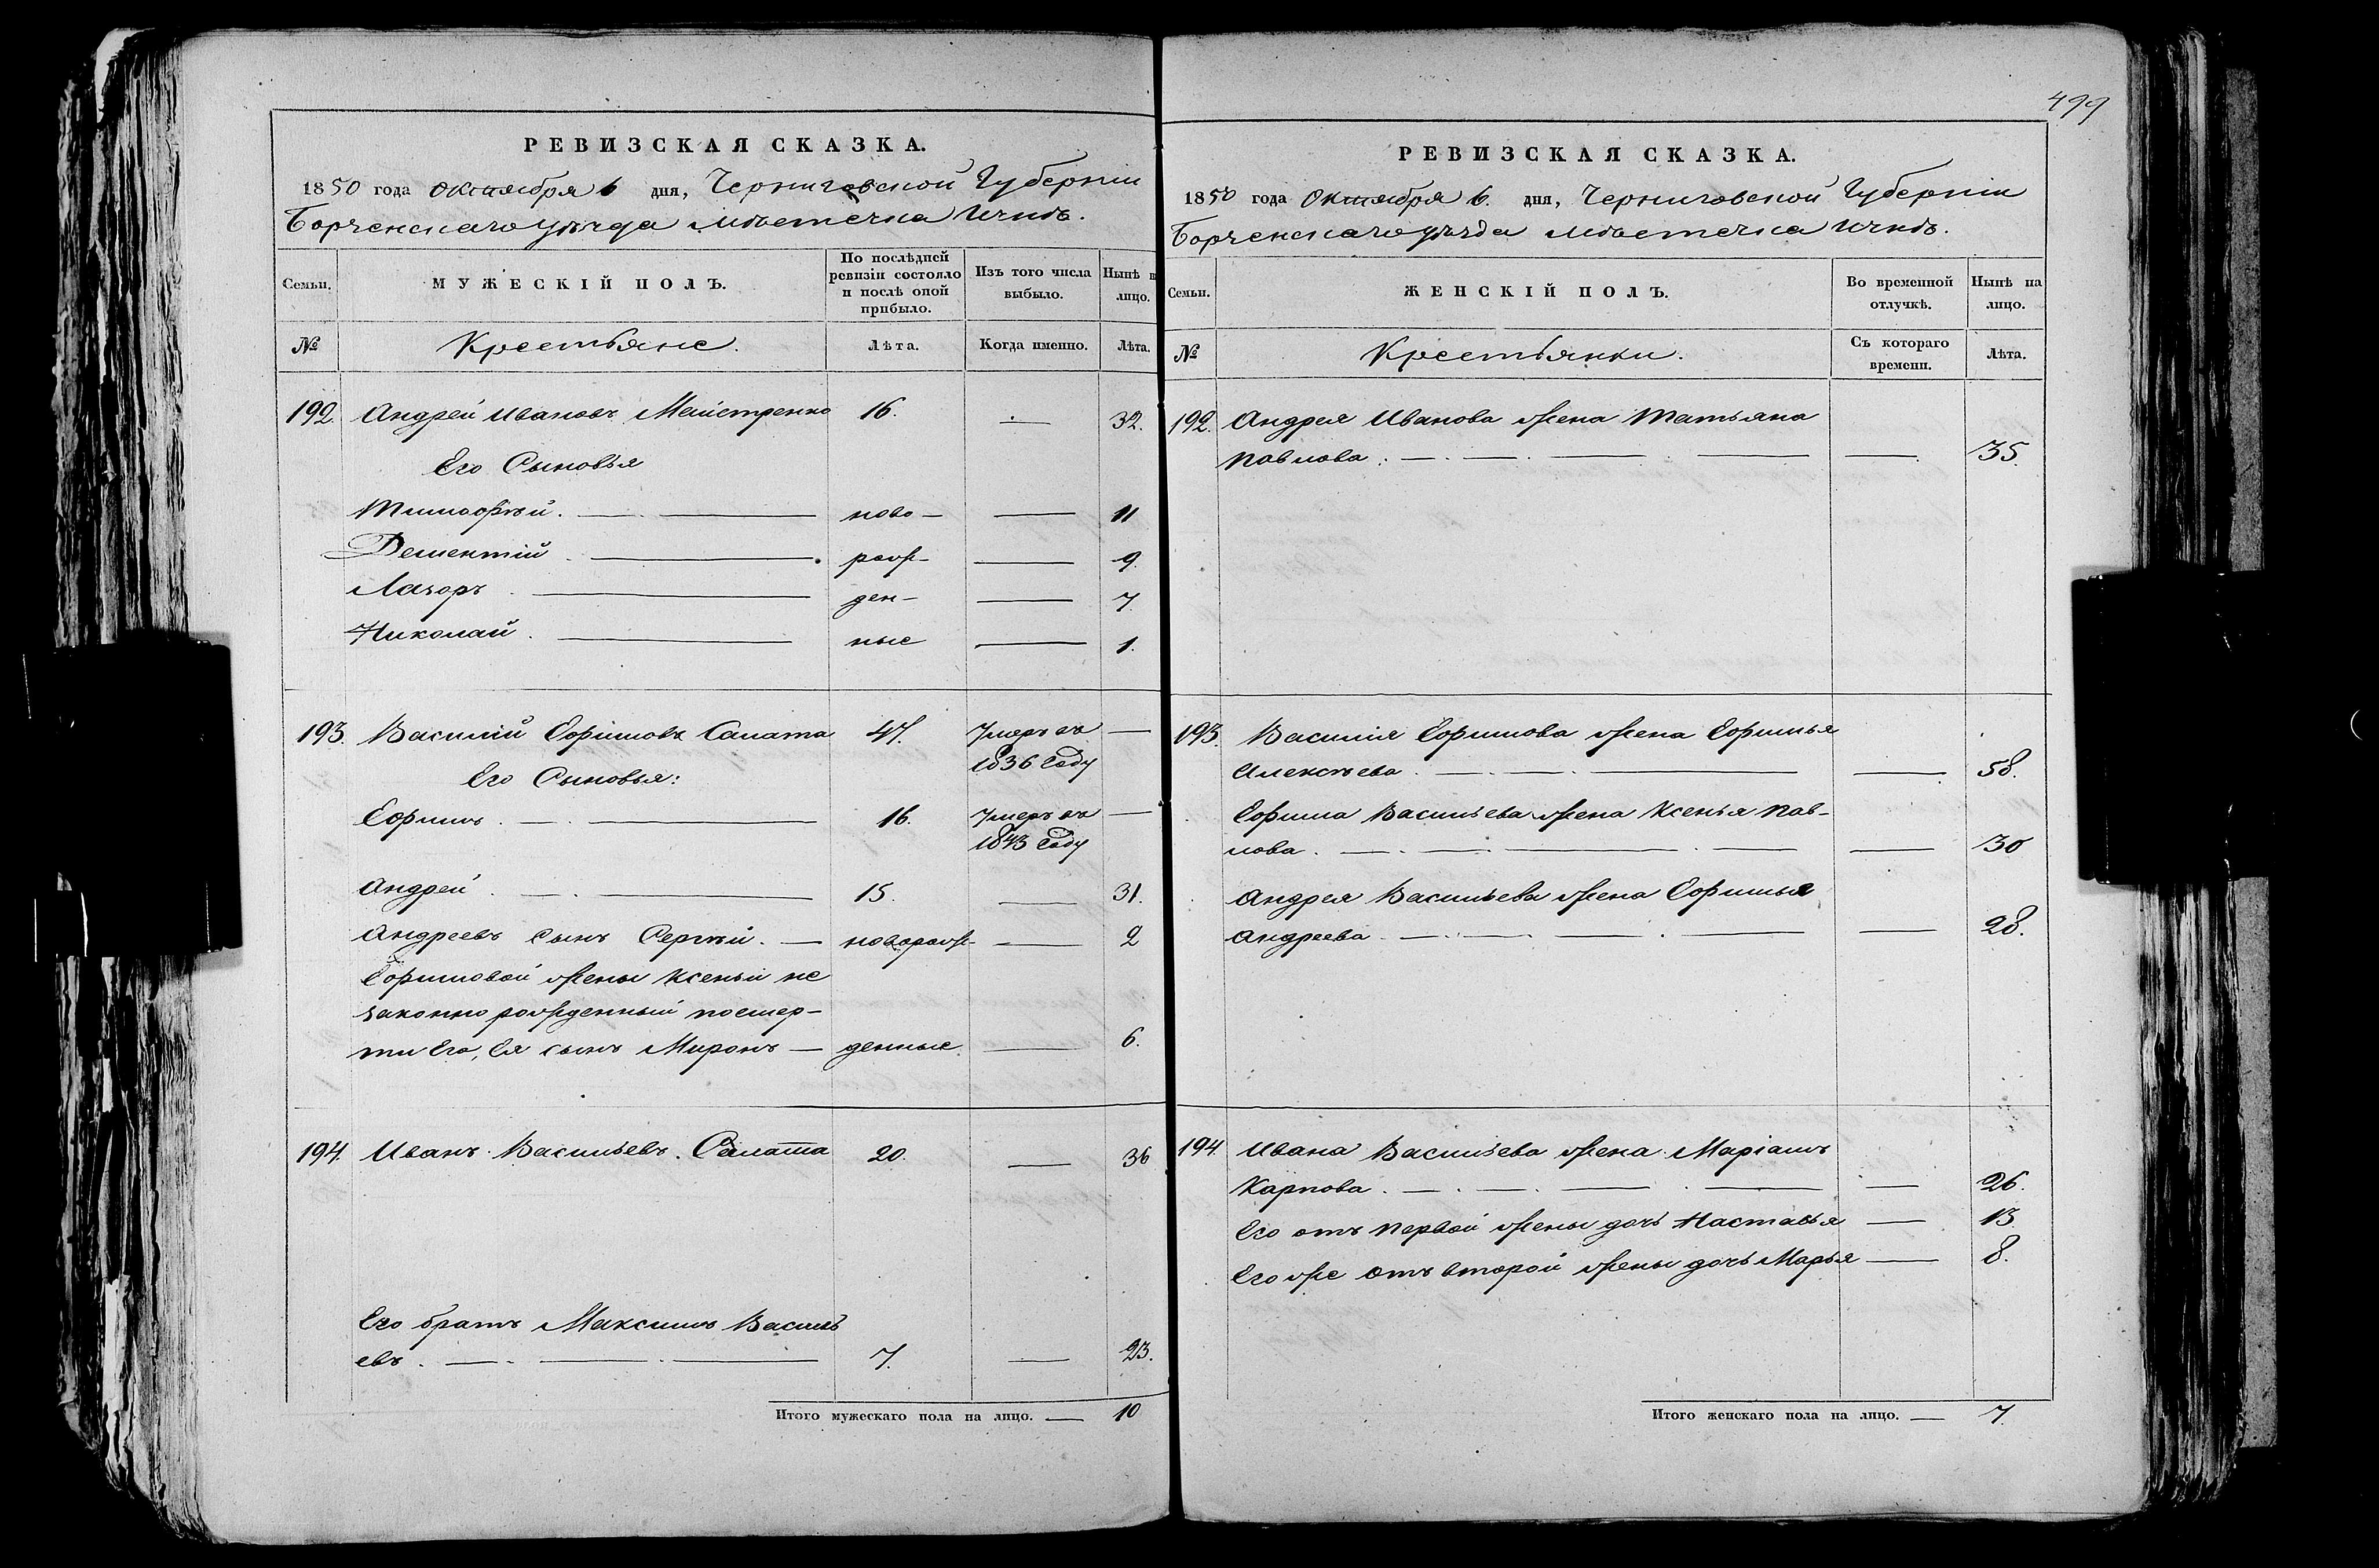 РЕВИЗСКАЯ СКАЗКА.
1850 года октября 6 дня, Черниговской Губерніи
Борзенскаго уѣзда мѣстечка Ични.
Семьи.
МУЖЕСКІЙ ПОЛЪ.
По послѣдней
ревизіи состояло
и послѣ оной
прибыло.
Изъ того числа
выбыло.
Нынѣ н
лицо.
№
Крестьяне.
Лѣта.
Когда именно.
Лѣта.
192. Андрей Ивановъ Майстренко 16. — 32.
Его Сыновья
Тимофѣй. — ново- — 11
Дементій — рож- — 9.
Лазорь — ден- — 7.
Николай. — ные — 1.
193. Василій Ефимовъ Салата 47. Умеръ въ —
1836 Году
Его Сыновья:
Ефимъ. — 16. Умеръ въ —
1843 Году
Андрей. — 15. — 31.
Андреевъ сынъ Сергѣй. —новорож- — 2
Ефимовой жены Ксеньи не
законно рожденный посмер-
ти Его, Ея сынъ Миронъ — денные. — 6.
194. Иванъ Васильевъ. Салата 20. — 36
Его братъ Максимъ Василь
евъ. — 7. — 23.
Итого мужескаго пола на лицо. — 10
499
РЕВИЗСКАЯ СКАЗКА.
1850 года Октября 6. дня, Черниговской Губерніи
Борзенскаго уѣзда мѣстечка Ични.
Семьи.
ЖЕНСКІЙ ПОЛЪ.
Во временной
отлучкѣ.
Нынѣ на
лицо.
№
Крестьянки.
Съ котораго
времени.
Лѣта.
192. Андрея Иванова жена Татьяна
Павлова. — — 35.
193. Василія Ефимова жена Ефимья
Алексѣева. — — 58.
Ефима Васильева жена Ксенья Пав-
лова. — — 30
Андрея Васильева жена Ефимья
Андреева — — 28.
194. Ивана Васильева жена Маріамъ
Карпова. — — 26.
Его отъ первой жены дочь Настасья — 13.
Его же отъ второй жены дочь Марья — 8.
Итого женскаго пола на лицо. — 7.